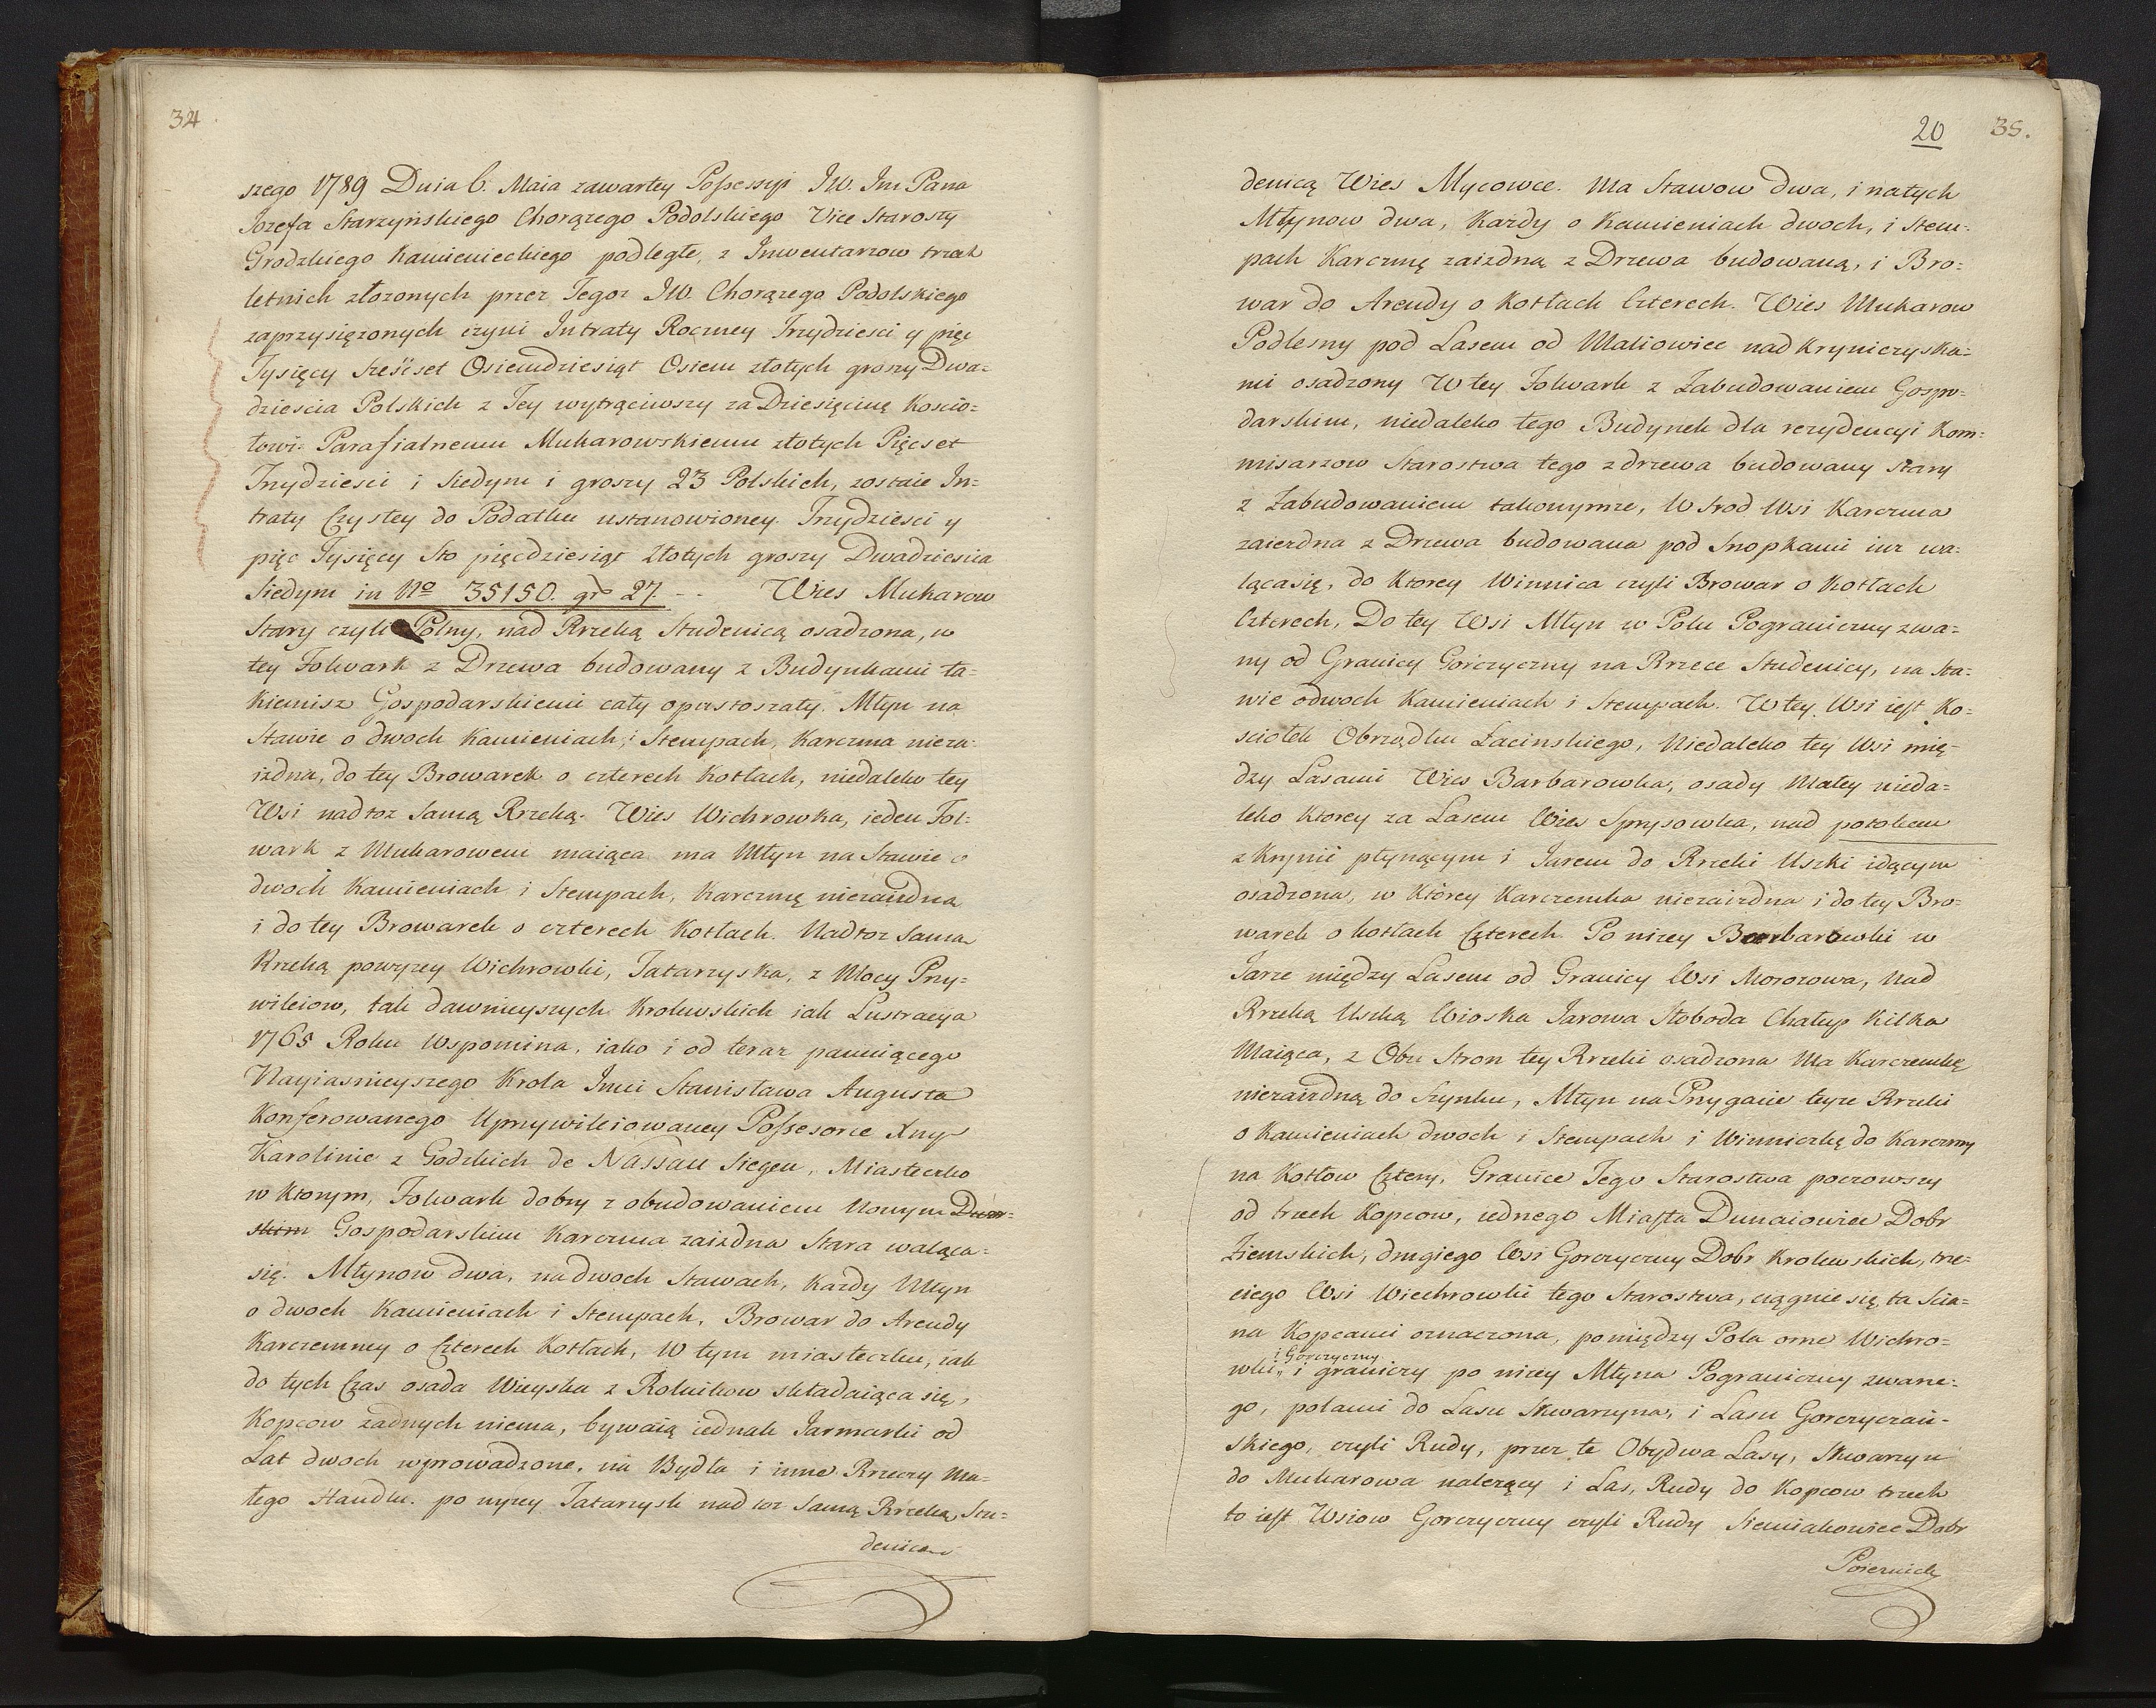 34
szego 1789 Dnia 6. Maia zawartey Possessyi JW. Im Pana
Jozefa Starzyńskiego Chorązego Podolskiego Vice Starosty
Grodzkiego Kamienieckiego podległe, z Inwentarzow trzech
letnich złozonych przez Tegoz JW. Chorązego Podolskiego
zaprzysięzonych czyni Intraty Roczney Trzydziesci y pięc
Tysięcy Sześćset Osiemdziesiąt Osiem złotych groszy Dwa=
dziescia Polskich z Tey wytrąciwszy za Dziesięcinę Koscio=
łowi Parafialnemu Mukarowskiemu złotych Pięcset
Trzydziesci i Siedym i groszy 23 Polskich, zostaie In=
traty Czystey do Podatku ustanowioney. Trzydziesci y
pięc Tysięcy Sto pięcdziesiąt Złotych groszy Dwadziescia
Siedym in No 35150. gr 27. - - Wies Mukarow
Stary czyli Polny, nad Rzeką Studenicą osadzona, w
tey Folwark z Drzewa budowany z Budynkami ta=
kiemisz Gospodarskiemi cały opustoszały. Młyn na
Stawie o dwoch Kamieniach, i Stempach, Karczma nieza=
izdna, do tey Browarek o czterech Kotłach, niedaleko tey
Wsi nad toz Samą Rzeką. Wies Wichrowka, ieden Fol=
wark z Mukarowem maiąca ma Młyn na Stawie o
dwoch Kamieniach i Stempach, Karczmę niezaizdną
i do tey Browarek o czterech Kotłach. Nad toz Samą
Rzeką powyzey Wichrowki, Tatarzyska, z Mocy Przy=
wileiow, tak dawnieyszych Krolewskich iak Lustracya
1765 Roku Wspomina, iako i od teraz panuiącego
Nayiasnieyszego Krola Imci Stanisława Augusta
Konferowanego Uprzywileiowaney Possesorce Xnie
Karolinie z Godzkich de Nassau Siegen, Miasteczko
w Ktorym, Folwark dobry z obudowaniem Nowym Dwor=
skim Gospodarskim Karczma zaizdna Stara waląca=
się. Młynow dwa, na dwoch Stawach, Kazdy Młyn
o dwoch Kamieniach i Stempach, Browar do Arendy
Karczemney o Czterech Kotłach, W tym miasteczku, iak
do tych Czas osada Wieyska z Rolnikow składaiąca się,
Kopcow zadnych niema, bywaią iednak Jarmarki od
Lat dwoch wprowadzone, na Bydła i inne Rzeczy Ma=
łego Handlu. po nizey Tatarzysk nad toz Samą Rzeką, Stu=
denicą
20
35.
denicą Wies Mycowce. Ma Stawow dwa, i na tych
Młynow dwa, Kazdy o Kamieniach dwoch, i Stem=
pach Karczmę zaizdną z Drzewa budowaną, i Bro=
war do Arendy o Kotłach Czterech. Wies Mukarow
Podlesny pod Lasem od Maliowiec nad Kryniczyska=
mi osadzony W tey Folwark z Zabudowaniem Gospo=
darskim, niedaleko tego Budynek dla rezydencyi Kom=
misarzow Starostwa tego z drzewa budowany Stary
z Zabudowaniem takowymze, W Srod Wsi Karczma
zaiezdna z Drzewa budowana pod Snopkami iuz wa=
lącasię, do Ktorey Winnica czyli Browar o Kotłach
Czterech, Do tey Wsi Młyn w Polu Pograniczny zwa=
ny od Granicy Gorczyczny na Rzece Studenicy, na Sta=
wie o dwoch Kamieniach i Stempach. W tey Wsi iest Ko=
sciołek Obrządku Łacinskiego, Niedaleko tey Wsi mię=
dzy Lasami Wies Barbarowka, osady Małey nieda=
leko Ktorey za Lasem Wies Sprysowka, nad potokiem
z Krynic płynącym i Jarem do Rzeki Uszki idącym
osadzona, w Którey Karczemka niezaizdna i do tey Bro=
warek o kotłach Czterech. Po nizey Barbarowki w
Jarze między Lasem od Granicy Wsi Morozowa, Nad
Rzeką Uszką Wioska Jarowa Słoboda Chałup Kilka
Maiąca, z Obu Stron tey Rzeki osadzona Ma Karczemkę
niezaizdną do Szynku, Młyn na Przygacie teyze Rzeki
o Kamieniach dwoch i Stempach i Winniczkę do Karczmy
na Kotłow Cztery, Granice Tego Starostwa począwszy
od trzech Kopcow, iednego Miasta Dunaiowiec Dobr
Ziemskich, drugiego Wsi Gorczyczny Dobr Krolewskich, trze=
ciego Wsi Wiechrowki tego Starostwa, ciągnie się ta Scia=
na Kopcami oznaczona, pomiędzy Pola orne Wichro=
i Gorczyczny
wki, i graniczy po nizey Młyna Pograniczny zwane=
go, polami do Lasu Skwarzyna, i Lasu Gorczyczań=
skiego, czyli Rudy, przez te Obydwa Lasy, Skwarzyn
do Mukarowa nalezący i Las, Rudy do Kopcow trzech
to iest Wsiow Gorczyczny czyli Rudy Siemiakowiec Dobr